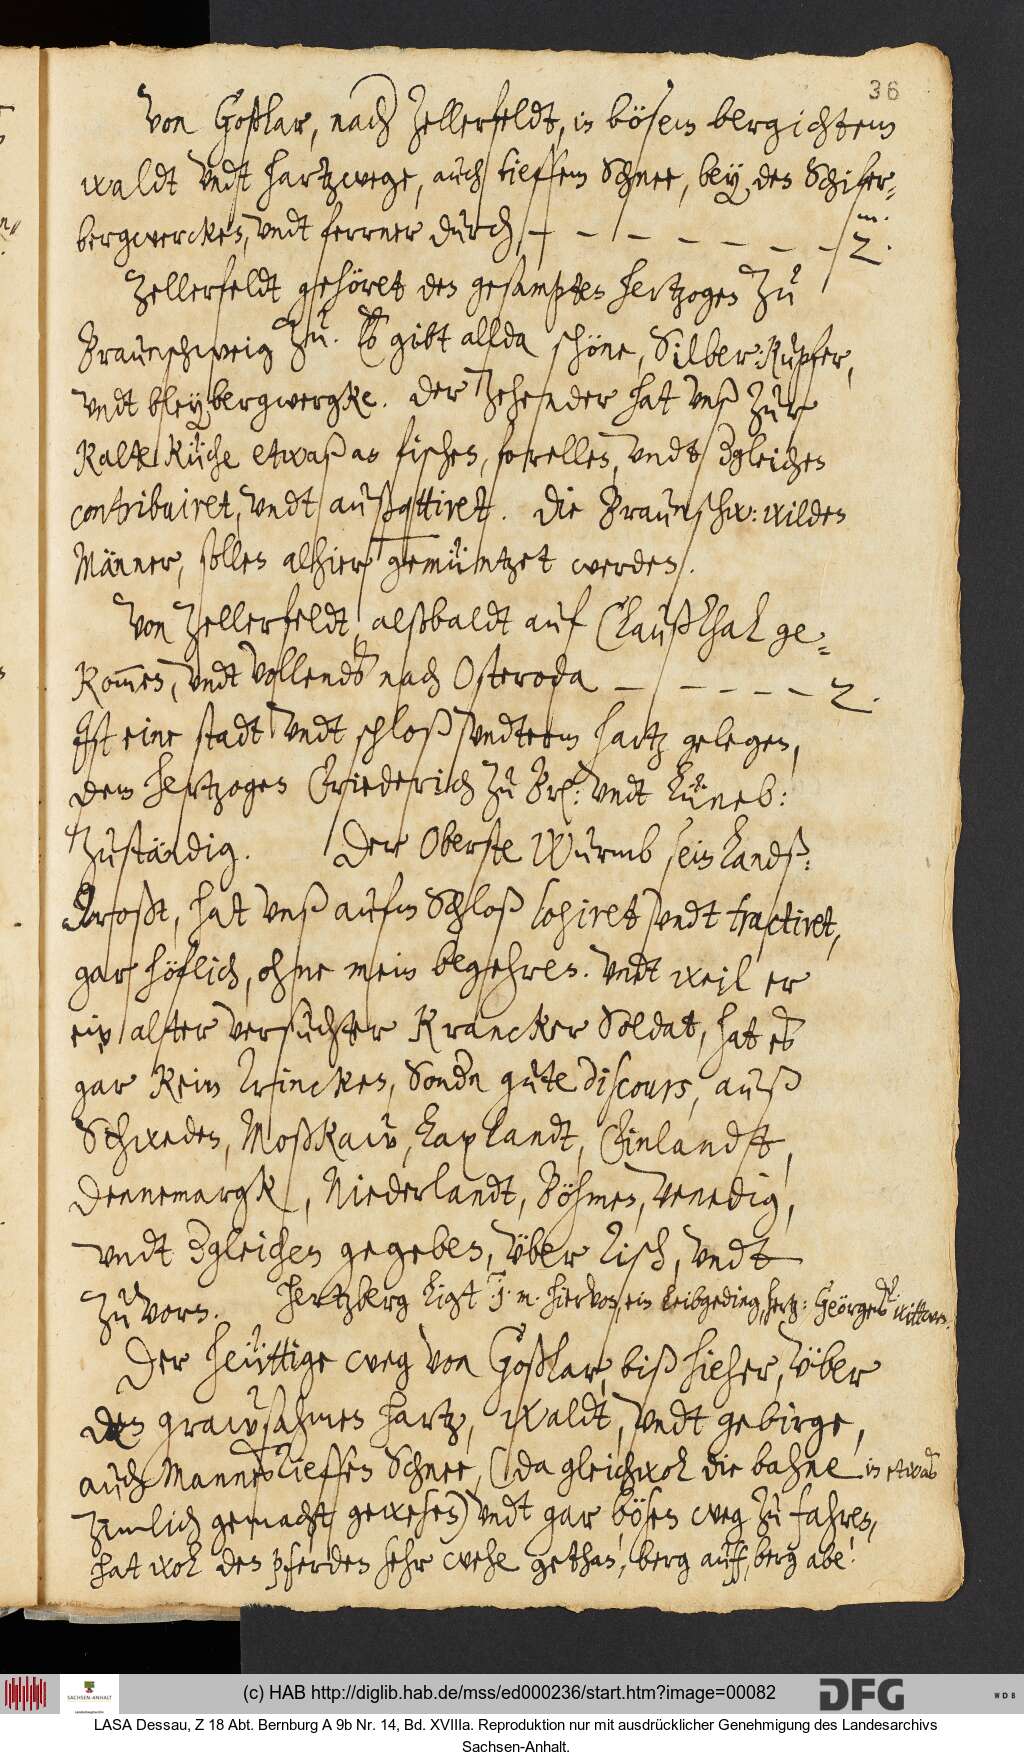 36
Von Goßlar, nach Zellerfeldt, in bösem bergichtem
waldt vndt hartzwege, auch tieffem Schnee, bey den Schifer-
bergwercken, vndt ferrner durch — — — — — — — m. 2.
Zellerfeldt gehöret den gesampten hertzogen zu
Braunschweig zu. Es gibt allda schöne, Silber: Kupfer,
vndt bleybergwergke. Der Zehender hat vnß zur
Kalte Küche etwaß an fischen, forellen, vndt dergleichen
contribuiret, vndt außattiret. Die Braunschw: wilden
Männer, sollen alhier gemüntzet werden.
Von Zellerfeldt, alßbaldt auf Claußthal ge-
kommen, vndt vollends nach Osteroda — — — — — 2.
Ist eine stadt vndt schloß vndterm hartz gelegen,
dem hertzogen Friederich zu Br: vndt Lüneb:
zuständig. Der Oberste Wurmb sein Landß:
Droßt, hat vnß aufm Schloß logiret vndt tractiret,
gar höflich, ohne mein begehren. Vndt weil er
ein alter versuchter Krancker Soldat, hat es
gar kein Trincken, Sondern gute discours, auß
Schweden, Moßkaw, Lapландt, Finlandt,
Dennemargk, Niederlandt, Böhmen, Venedig,
vndt dergleichen gegeben, vber Tisch, vndt
zuvorn. Hertzberg ligt 1 m. hiervon, ein Leibgeding, hertz: Geörgens wittwen.
Der heüttige weg von Goßlar, biß hieher, vber
den grawsahmen hartz, waldt, vndt gebirge,
auch Manns Tieffen Schnee, (da gleichwol die bahne in etwas
zimlich gemacht gewesen) vndt gar bösen weg zu fahren,
hat wol den pferden sehr wehe gethan, berg auff, berg abe.
(c) HAB http://diglib.hab.de/mss/ed000236/start.htm?image=00082
SACHSEN-ANHALT
DFG
WDB
LASA Dessau, Z 18 Abt. Bernburg A 9b Nr. 14, Bd. XVIIIa. Reproduktion nur mit ausdrücklicher Genehmigung des Landesarchivs
Sachsen-Anhalt.